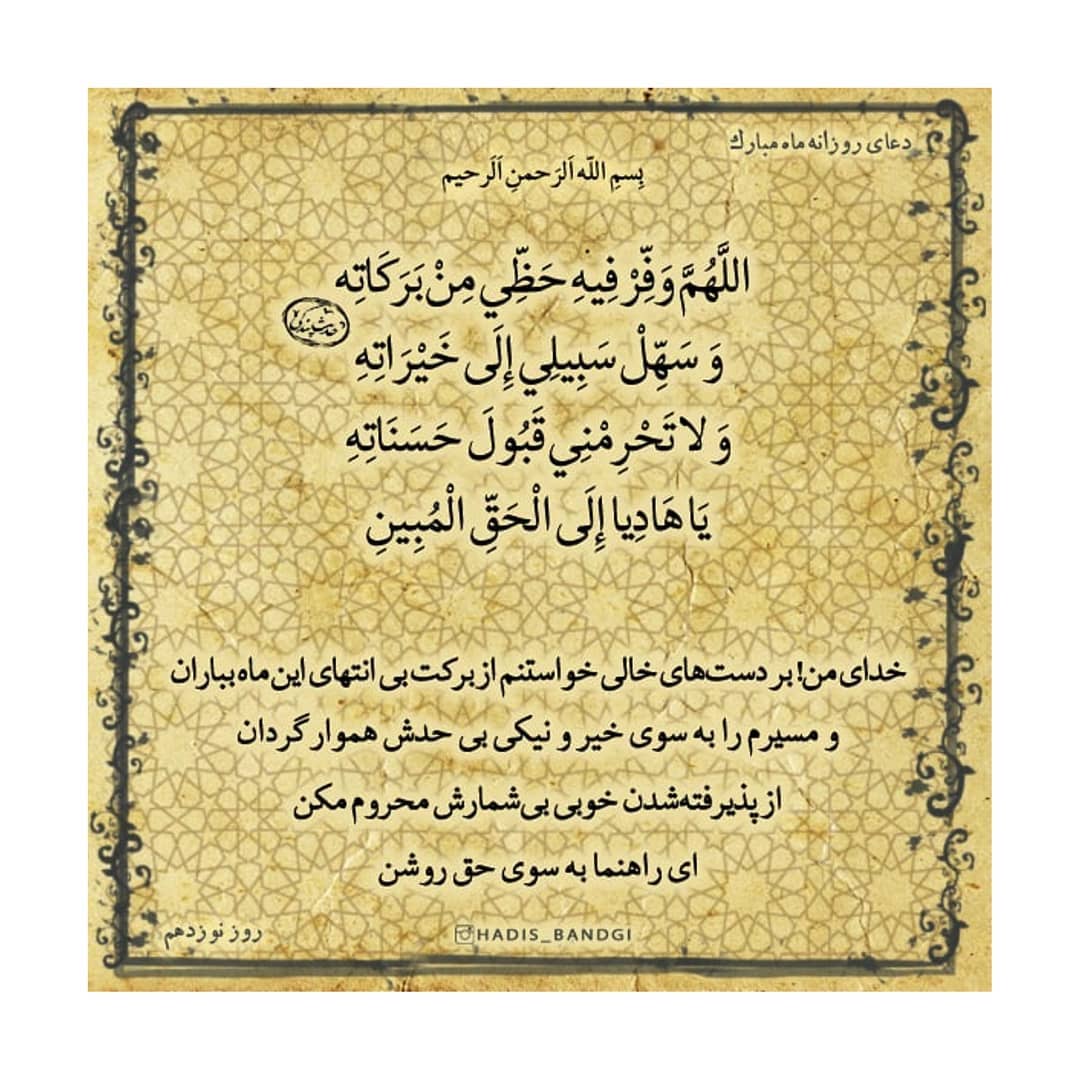 دعای روزانه ماه مبارک
بِسمِ اللّه اَلرَحمنِ اَلَرحیم
اللَّهُمَّ وَفِّرْ فِيهِ حَظِّي مِنْ بَرَكَاتِه
حدیث بندگی
وَ سَهِّلْ سَبِيلِي إِلَى خَيْرَاتِهِ
وَ لا تَحْرِمْنِي قَبُولَ حَسَنَاتِهِ
يَا هَادِيا إِلَى الْحَقِّ الْمُبِينِ
خدای من! بر دست‌های خالی خواستنم از برکت بی انتهای این ماه بباران
و مسیرم را به سوی خیر و نیکی بی حدش هموار گردان
از پذیرفته‌شدن خوبی بی‌شمارش محروم مکن
ای راهنما به سوی حق روشن
روز نوزدهم
HADIS_BANDGI